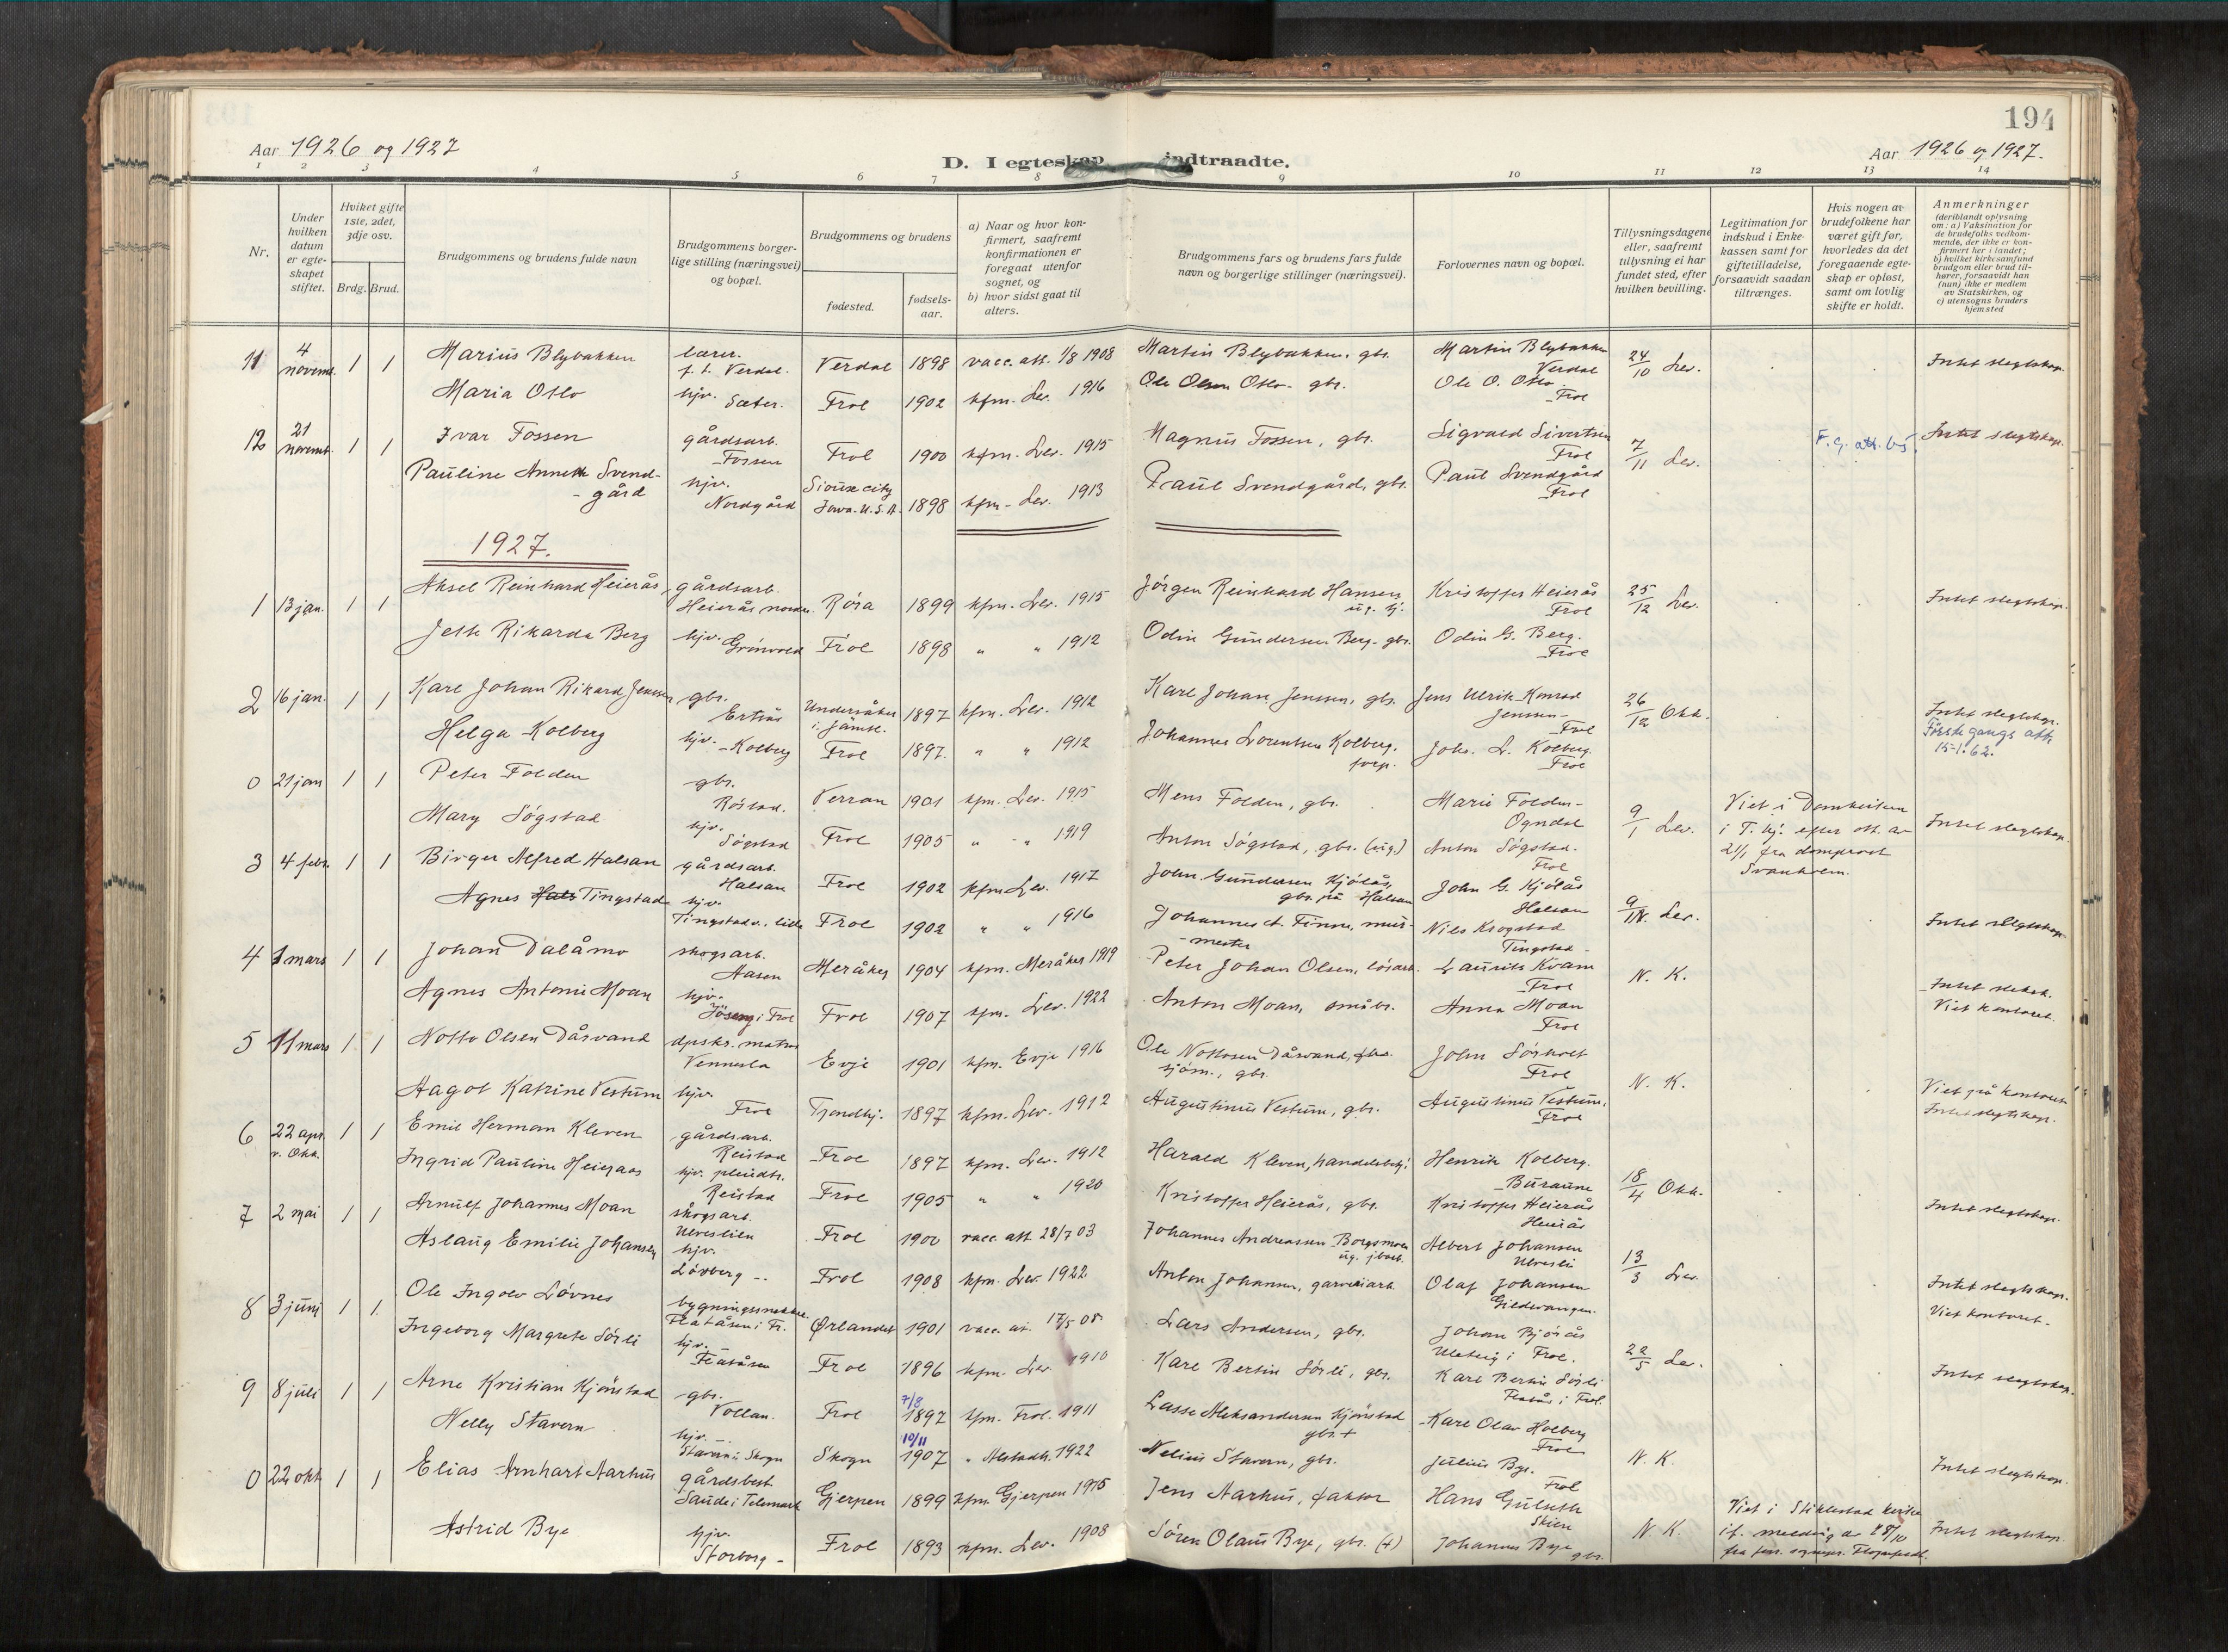 194
Aar 1926 og 1927
D. I egteskap indtraadte.
Aar 1926 og 1927.
1 2 3 4 5 6 7 8 9 10 11 12 13 14
Nr.
Under hvilken datum er egte-skapet stiftet.
Hvilket gifte 1ste, 2det, 3dje osv.
Brdg. Brud.
Brudgommens og brudens fulde navn
Brudgommens borger-lige stilling (næringsvei) og bopæl.
Brudgommens og brudens
fødested.
fødsels-aar.
a) Naar og hvor kon-firmert, saafremt konfirmationen er foregaat utenfor sognet, og
b) hvor sidst gaat til alters.
Brudgommens fars og brudens fars fulde navn og borgerlige stillinger (næringsvei).
Forlovernes navn og bopæl.
Tillysningsdagene eller, saafremt tillysning ei har fundet sted, efter hvilken bevilling.
Legitimation for indskud i Enke-kassen samt for giftetilladelse, forsaavidt saadan tiltrænges.
Hvis nogen av brudefolkene har været gift før, hvorledes da det foregaaende egte-skap er opløst, samt om lovlig skifte er holdt.
Anmerkninger
(deriblandt oplysning om: a) Vaksination for de brudefolks vedkom-mende, der ikke er kon-firmert her i landet;
b) hvilket kirkesamfund brudgom eller brud til-hører, forsaavidt han (hun) ikke er medlem av Statskirken, og
c) utensogns bruders hjemsted
11 4 novemb. 1 1 Marius Blybakken lærer. f. t. Verdal. Verdal 1898 vacc. att. 1/8 1908 Martin Blybakken, gbr. Martin Blybakken Verdal 24/10 Lev. Intet slegtskap.
Maria Oslo hjv. Sæter. Frol 1902 kfm. Lev. 1916 Ole Olsen Oslo gbr. Ole O. Oslo Frol
12 21 novemb. 1 1 Ivar Fossen gårdsarb. Fossen Frol 1900 kfm. Lev. 1915 Magnus Fossen, gbr. Sigvald Sivertsen Frol 7/11 Lev. F. g. att. Intet slegtskap.
Pauline Annette Svend-gård hjv. Nordgård Sioux city Iowa. U.S.A. 1898 kfm. Lev. 1913 Paul Svendgård, gbr. Paul Svendgård Frol
1927.
1 13 jan. 1 1 Aksel Reinhard Heierås gårdsarb. Heierås nordre Røra 1899 kfm. Lev. 1915 Jørgen Reinhard Hansen Kristoffer Heierås Frol 25/12 Lev. Intet slegtskap.
Jette Rikarda Berg hjv. Grönvold Frol 1898 " " 1912 Odin Gundersen Berg gbr. Odin G. Berg. Frol
2 16 jan. 1 1 Karl Johan Rikard Jenssen gbr. Ertsås Undersåker i Jämtl. 1897 kfm. Lev. 1912 Karl Johan Jenssen, gbr. Jens Ulrik Konrad Jenssen Frol 26/12 Okk. Intet slegtskap. Förstegangs att. 15-1.62.
Helga Kolberg hjv. Kolberg Frol 1897. " " 1912 Johannes Lorentsen Kolberg. forp. Johs. L. Kolberg. Frol
0 21 jan 1 1 Peter Folden gbr. Röstad. Verran 1901 kfm. Lev. 1915 Mens Folden, gbr. Marie Folden Ogndal 9/1 Lev. Viet i Domkirken i T. hj. efter att. av 21/1 fra domprost Svanholm. Intet slegtskap.
Mary Søgstad hjv. Søgstad Frol 1905 " " 1919 Anton Søgstad, gbr. (ug.) Anton Søgstad. Frol
3 4 febr. 1 1 Birger Alfred Halsan gårdsarb. Halsan Frol 1902 kfm Lev. 1917 John Gundersen Kjölås, gbr. på Halsan John G. Kjölås Halsan Lev. Intet slegtskap.
Agnes Tingstad hjv. Tingstad v. lille Frol 1902 " " 1916 Johannes A. Finne, mur-mester Nils Krogstad Tingstad
4 1 mars 1 1 Johan Dalåmo skogsarb. Aasen Meråker 1904 kfm. Meråker 1919 Peter Johan Olsen, løsarb. Laurits Kvam Frol N. K. Intet slektsk. Viet kontoret.
Agnes Antonie Moan hjv. Jøsong i Frol Frol 1907 kfm. Lev. 1922 Anton Moan, småbr. Anna Moan Frol
5 11 mars 1 1 Notto Olsen Dåsvand dpsks. matros Vennesla Evje 1901 kfm. Evje 1916 Ole Nottosen Dåsvand, sjöm., gbr. John Sörholt Frol N. K. Viet på kontoret Intet slegtskap.
Aagot Katrine Vestum hjv. Frol Trondhj. 1897 kfm. Lev. 1912 Augustinus Vestum, gbr. Augustinus Vestum. Frol
6 22 apr. v. Okk. 1 1 Emil Herman Kleven gårdsarb. Reistad Frol 1897 kfm. Lev. 1912 Harald Kleven, handelsbetj. Henrik Kolberg. Buraune 18/4 Okk. Intet slegtskap.
Ingrid Pauline Heieraas hjv. Reistad Frol 1905 " " 1920 Kristoffer Heierås, gbr. Kristoffer Heierås Heierås
7 2 mai 1 1 Arnulf Johannes Moan skogsarb. Ulveslien Frol 1900 vacc. att 28/7 03 Johannes Andreassen Borgsmoen Albert Johansen Ulvesli 13/3 Lev. Intet slegtskap. Viet kontoret.
Aslaug Emilie Johansen hjv. Lövberg Frol 1908 kfm. Lev. 1922 Anton Johansen, garveriarb. Olaf Johansen Gildevangen.
8 3 juni 1 1. Ole Ingolv Lövnes bygningssnekker. Flatåsen i Fr. Ørlandet 1901 vacc. at. 17/5 08 Lars Andersen, gbr. Johan Bjørås i Frol. 22/5 Lev. Intet slegtskap.
Ingeborg Margrete Sörli hjv. Flatåsen Frol 1896 kfm. Lev. 1910 Karl Bertin Sörli, gbr. Karl Bertin Sörli Flatås i Frol.
9 8 juli 1 1 Arne Kristian Kjönstad gbr. Vollan. Frol 7/8 1897 kfm. Frol. 1911 Lasse Aleksandersen Kjönstad gbr. + Karl Olav Holberg Frol N. K. Intet slegtskap.
Nelly Stavern hjv. Stavern i Skogn Skogn 10/11 1907 " Alstadh. 1922 Nelius Stavern, gbr. Julius Bye. Frol
0 22 okt 1 1 Elias Arnhart Aarhus gårdsbest Saude i Telemark Gjerpen 1899 kfm. Gjerpen 1915 Jens Aarhus, faktor Hans Gulseth Skien N. K. Viet i Stiklestad kirke if. melding av 28/10 Intet slegtskap.
Astrid Bye hjv. Storborg Frol 1893 kfm. Lev. 1908 Sören Olaus Bye, gbr. (+) Johannes Bye gbr.